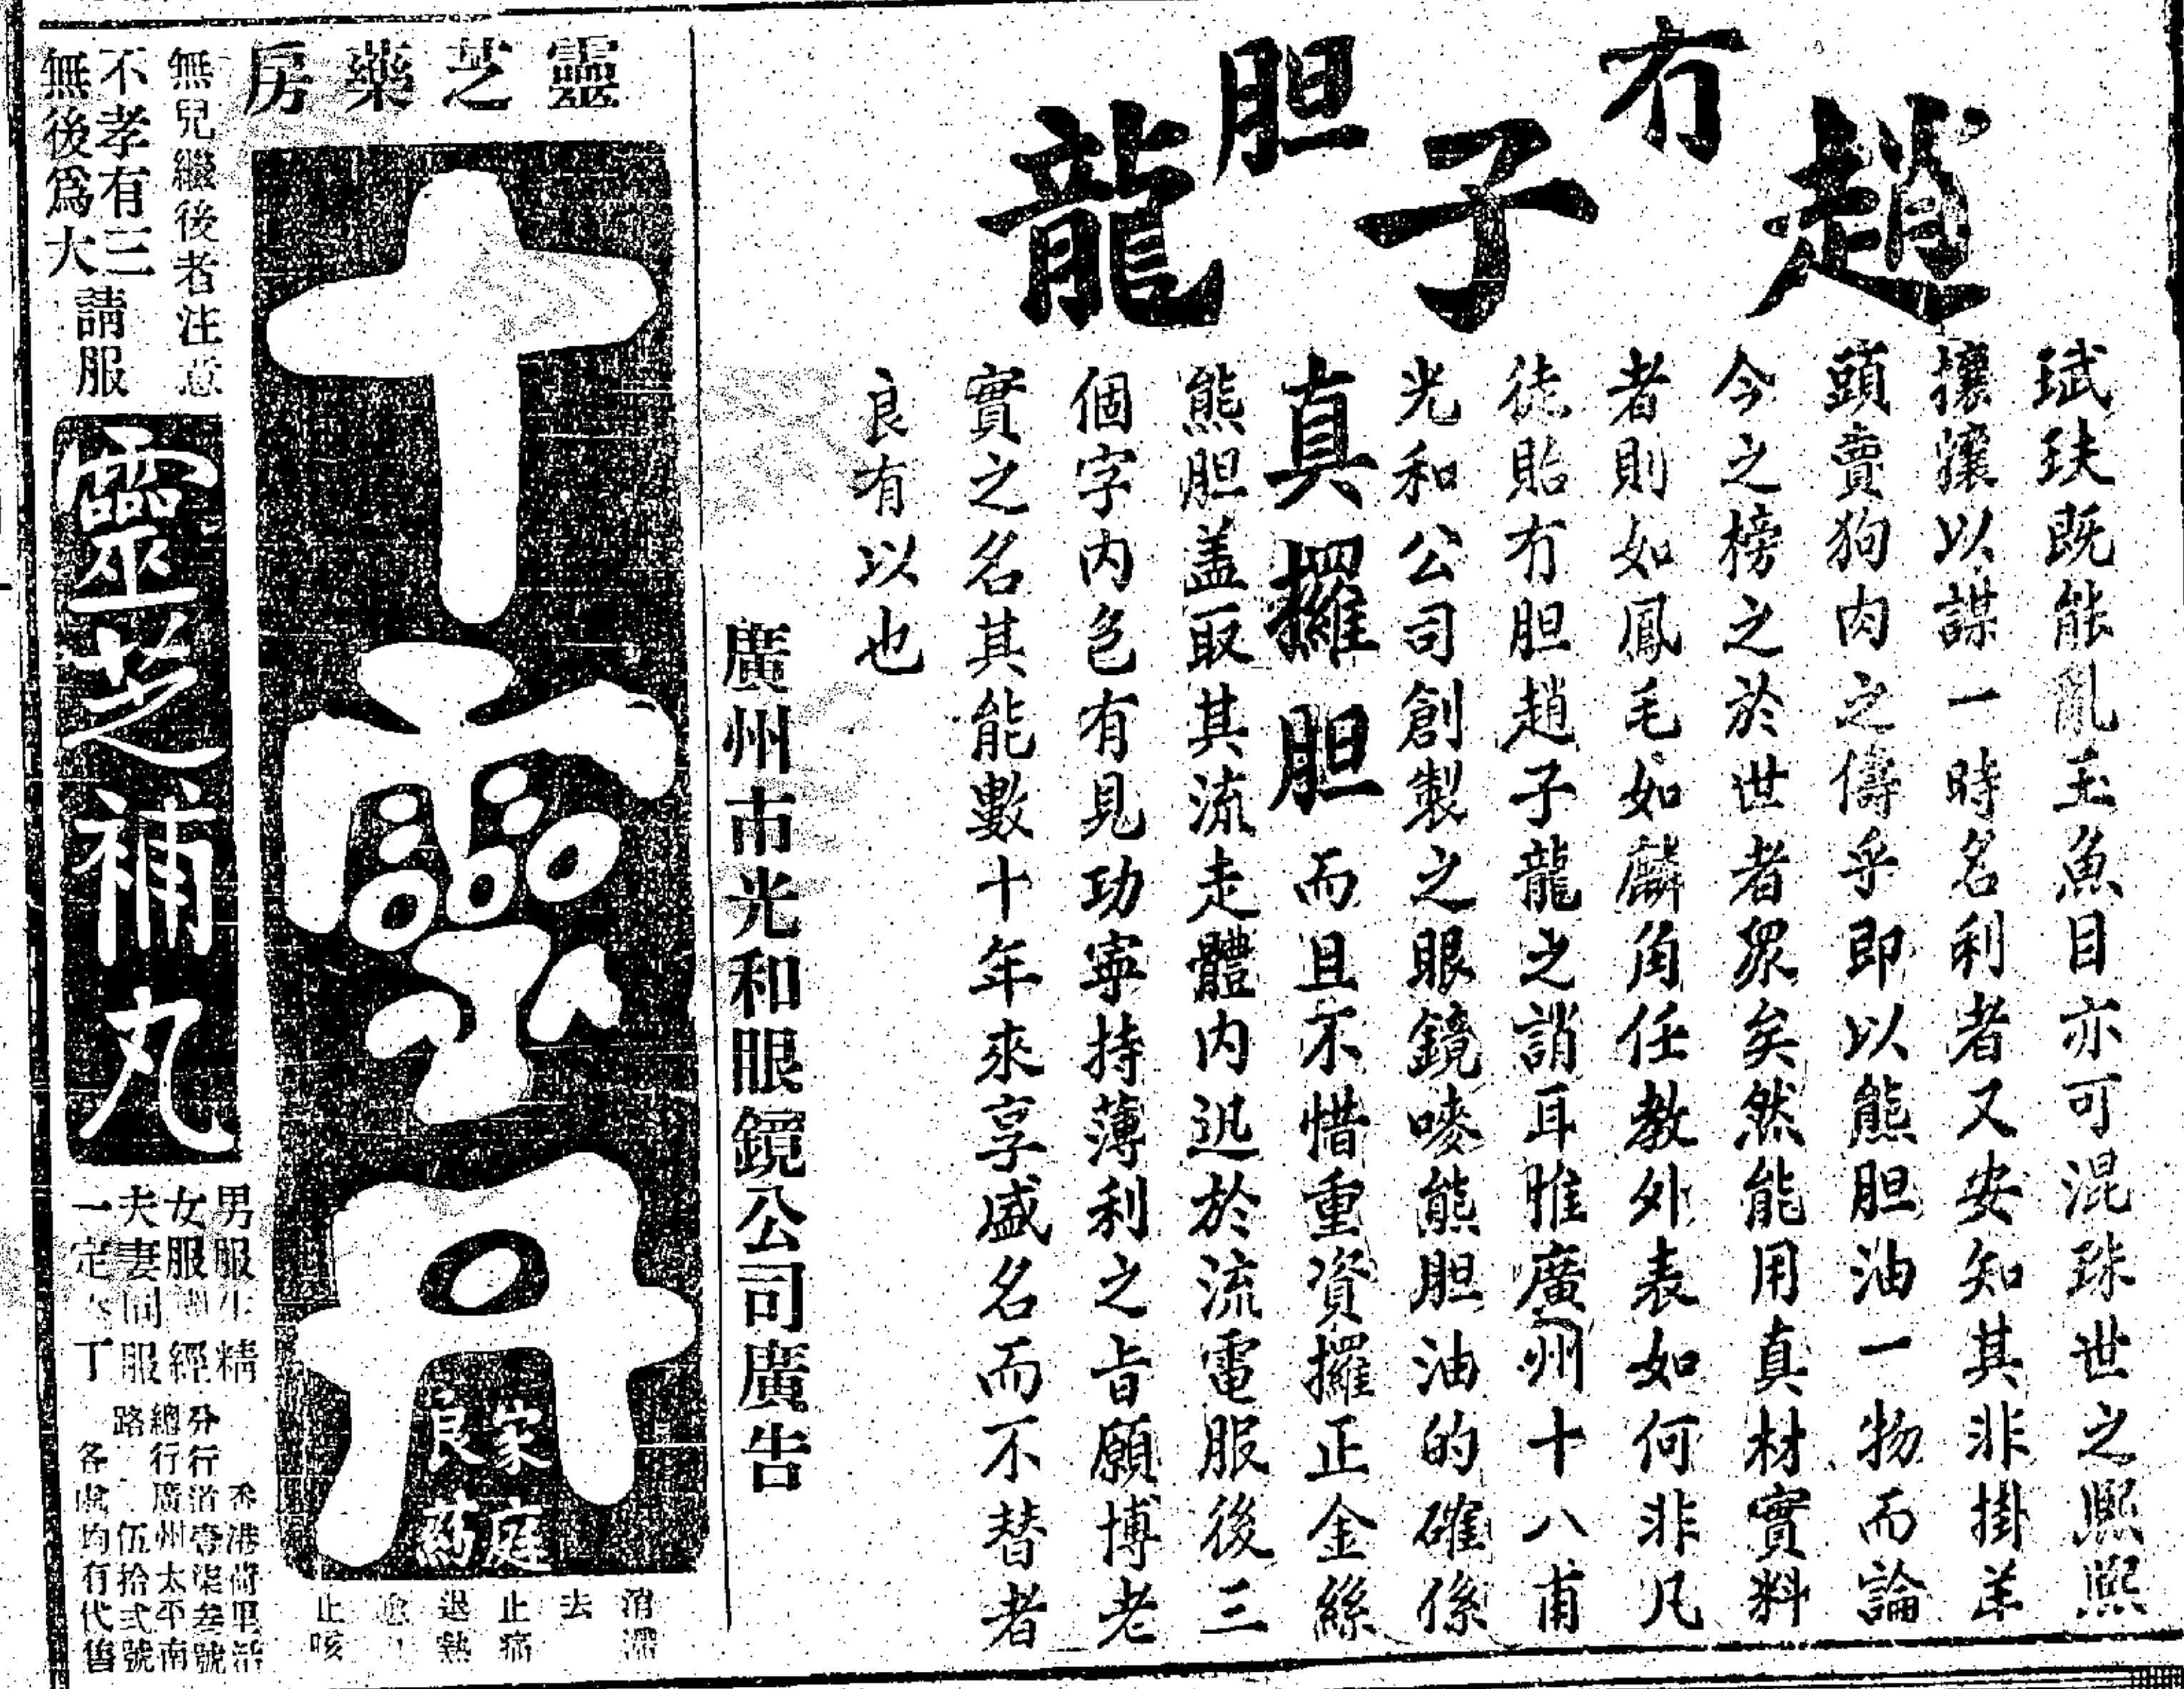 趙冇子胆龍
珷玞既能亂玉魚目亦可混珠世之熙熙
攘攘以謀一時名利者又安知其非掛羊
頭賣狗肉之儔乎即以熊胆油一物而論
今之榜之於世者衆矣然能用真材實料
者則如鳳毛如麟角任教外表如何非凡
徒貽冇胆趙子龍之誚耳惟廣州十八甫
光和公司創製之眼鏡嘜熊胆油的確係
真攞胆而且不惜重資攞正金絲
熊胆盖取其流走體内迅於流電服後三
個字内包有見功寧持薄利之旨願博老
實之名其能數十年來享盛名而不替者
良有以也
廣州市光和眼鏡公司廣告
靈芝藥房
十靈丹
家庭
良药
消滯
去
止痛
退熱
止咳
無兒繼後者注意
不孝有三
無後爲大
請服
靈芝補丸
男服生精
女服調經
夫妻同服
一定添丁
香港荷里活
分行道壹柒叁號
總行廣州太平南
路伍拾弍號
各處均有代售